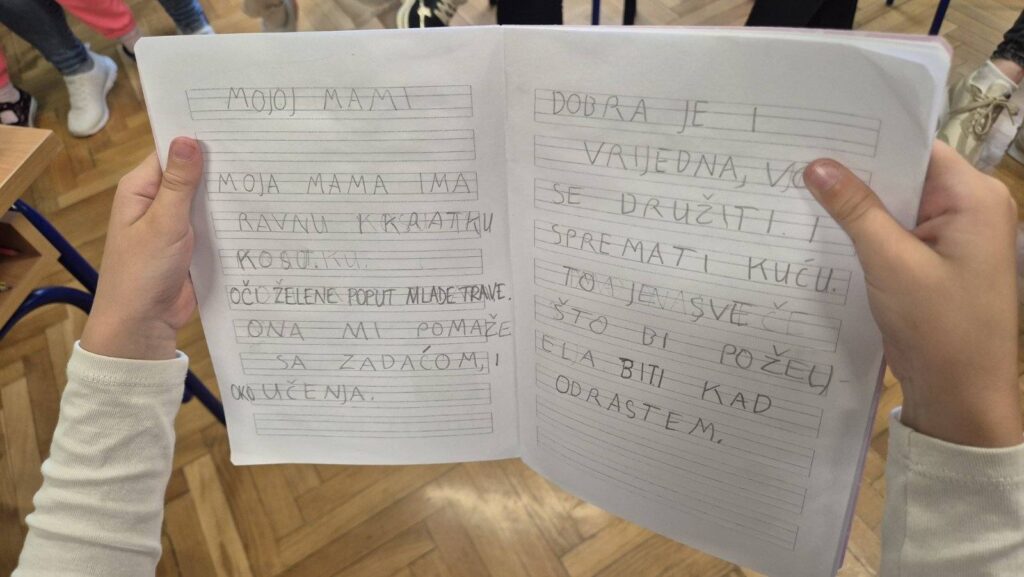 MOJOJ MAMI
MOJA MAMA IMA
RAVNU KKRATKU
KOSU.
OČI ŽELENE POPUT MLADE TRAVE.
ONA MI POMAŽE
SA ZADAĆOM, I
OKO UČENJA.
DOBRA JE I
VRIJEDNA,
SE DRUŽITI. I
SPREMATI KUĆU.
TO JE SVE
ŠTO BI POŽELJ-
ELA BITI KAD
ODRASTEM.